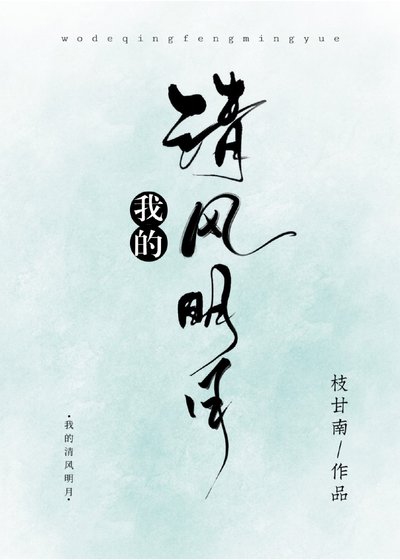 wodeqingfengmingyue
我的
清风明月
枝甘南/作品
·我的清风明月·